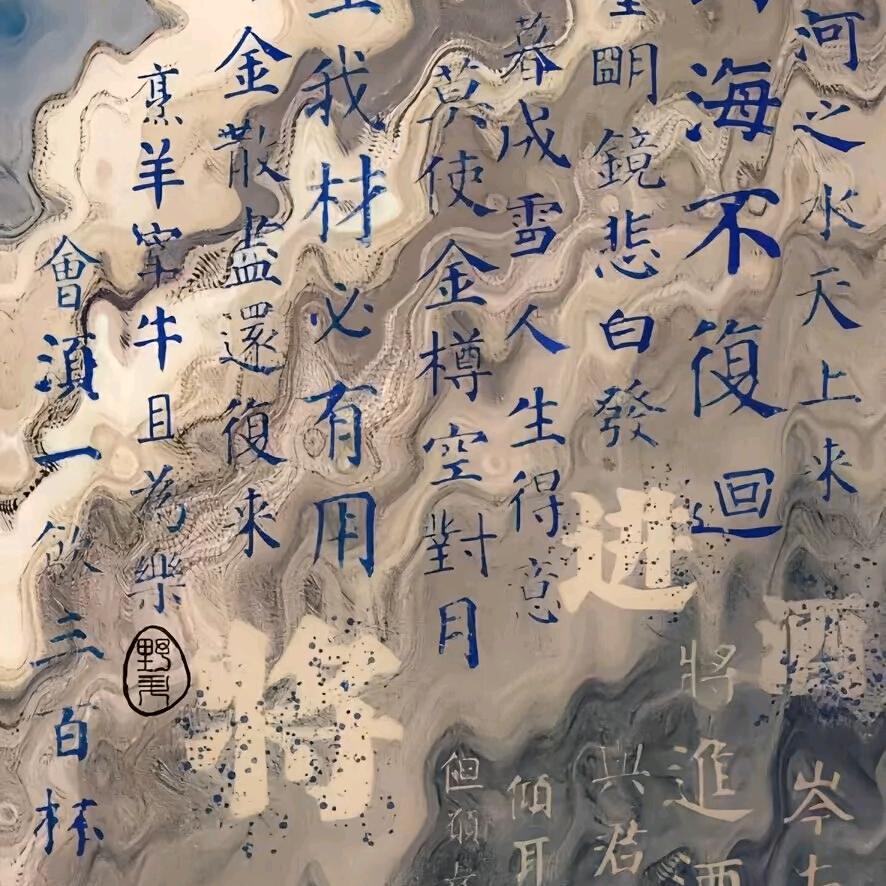 河之水天上来
海不復迴
明鏡悲白發
暮成雪人生得意
莫使金樽空對月
我材必有用
金散盡還復来
烹羊宰牛且為樂
會須一飲三百杯
将
进
酒
岑
將進酒
與君
傾耳
但願